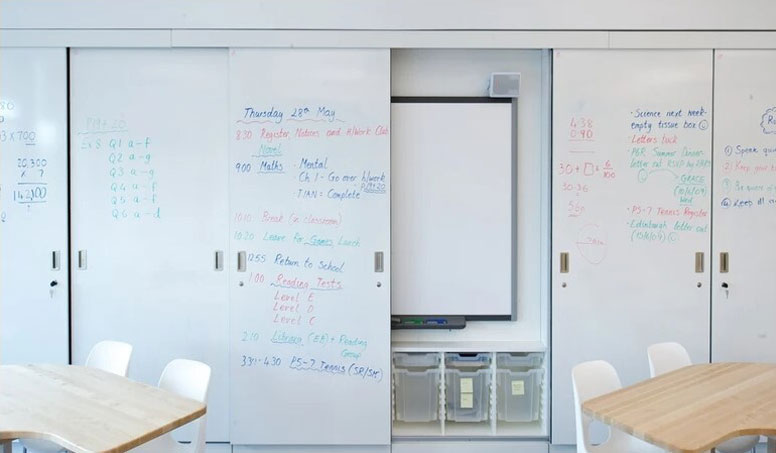 3 x 700
20,300
x 7
142,100
P19+20
Ex 8 Q1 a-f
Q2 a-g
Q3 a-g
Q4 a-f
Q5 a-f
Q6 a-d
Thursday 28th May
8:30 Register, Notices and H/work Club
Novel
9:00 Maths - Mental
Ch 1 - Go over h/work
P19+20
TJAN = Complete
10:10 Break (in classroom)
10:20 Leave for Games, Lunch
12:55 Return to School
1:00 Reading Tests
Level E
Level D
Level C
2:10 Library (ER) + Reading
Group
3:30-4:30 P5-7 Tennis (SR/SM)
438
0.90
30 +
6
100
30 36
• Science next week-
empty tissue box
• Letters tuck
Summer
letter out RSVP by
GRACE
(10/6/09)
• P5-7 Tennis Register
• Edinburgh letter out
(10/6/09)
① Speak
② Keep your
③
④ Keep all